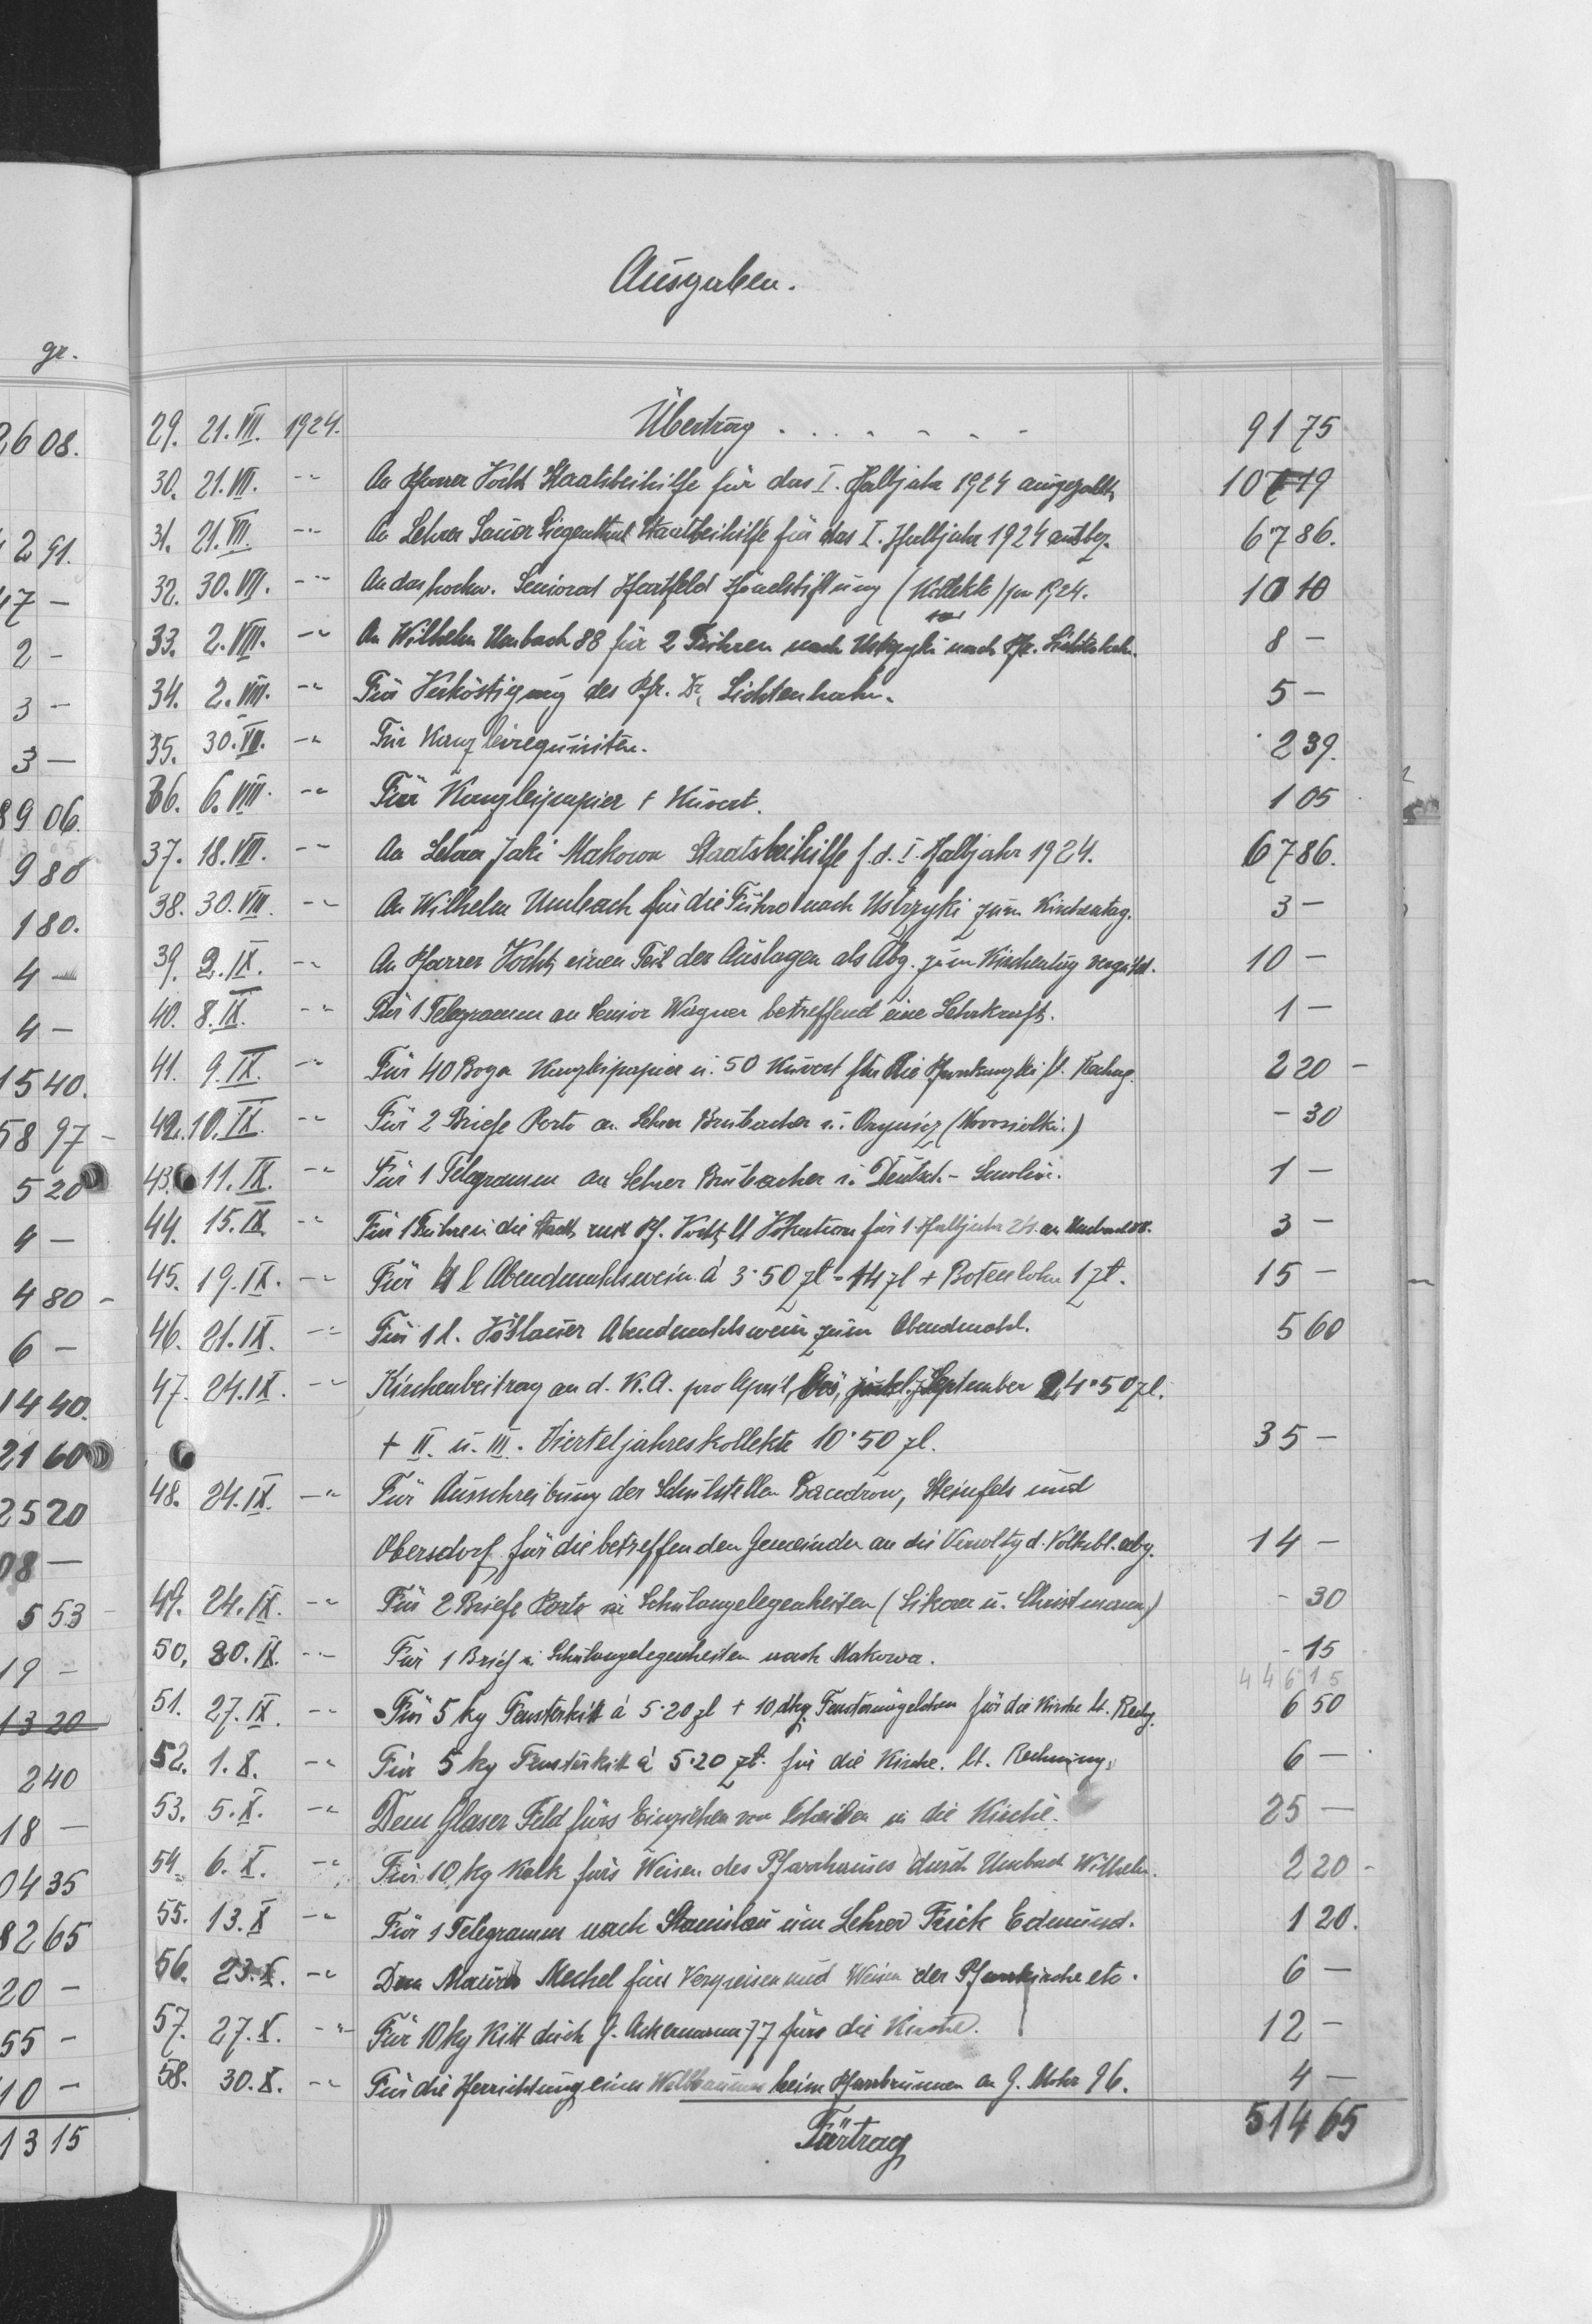 Ausgaben.
gr.
29. 21. VII. 1924. Übertrag . . . . . . . 91 75
30. 21. VII. -"- An Pfarrer Vocht Staatsbeihilfe für das I. Halbjahr 1924 ausgezahlt 107 19
31. 21. VII. -"- An Lehrer Sauer Siegenthal Staatsbeihilfe für das I. Halbjahr 1924 ausbez. 67 86.
32. 30. VII. -"- An das hochw. Seniorat Hartfeld (Kollekte) pro 1924. 10 10
33. 2. VIII. -"- An Wilhelm Umbach 88 für 2 Fuhren nach Ustrzyki nach Pfr. Lichtenhahn. 8 -
34. 2. VIII. -"- Für Verköstigung des Pfr. Dr. Lichtenhahn. 5 -
35. 30. VII. -"- Für Kanzleirequisiten. 2 39.
36. 6. VIII. -"- Für Kanzleipapier + Kuvert. 1 05
37. 18. VII. -"- An Lehrer Jaki Makowa Staatsbeihilfe f. d. I. Halbjahr 1924. 67 86.
38. 30. VIII. -"- An Wilhelm Umbach für die Fuhre nach Ustrzyki zum Kirchentag. 3 -
39. 2. IX. -"- An Pfarrer Vocht einen Teil der Auslagen als Abg. zum Kirchentag vergütet. 10 -
40. 8. IX. -"- Für 1 Telegramm an Senior Wagner betreffend eine Lehrkraft. 1 -
41. 9. IX. -"- Für 40 Bogen Kanzleipapier u. 50 Kuvert für die Pfarrkanzlei lt. Rechng. 2 20 -
42. 10. IX. -"- Für 2 Briefe Porto an Lehrer Brubacher u. (Nowosiolki.) - 30
43. 11. IX. -"- Für 1 Telegramm an Lehrer Brubacher i. Deutsch- Smolin. 1 -
44. 15. IX. -"- Für 1 Fuhre in die Stadt mit Pf. Vocht für 1. Halbjahr 24. an Umbach 88. 3 -
45. 19. IX. -"- Für 4 l Abendmahlswein à 3·50 zł = 14 zł + Botenlohn 1 zł. 15 -
46. 21. IX. -"- Für 1 l. Vöslauer Abendmahlswein zum Abendmahl. 5 60
47. 24. IX. -"- Kirchenbeitrag an d. K. A. pro April, September 24·50 zl.
+ II. u. III. Vierteljahreskollekte 10·50 zl. 35 -
48. 24. IX. -"- Für Ausschreibung der Schulstellen Bandrow, Steinfels und
Obersdorf für die betreffenden Gemeinden an die Verwltg d. Volksbl. abg. 14 -
49. 24. IX. -"- Für 2 Briefe Porto in Schulangelegenheiten (Sikorer u. Christmann) - 30
50. 20. IX. -"- Für 1 Brief in Schulangelegenheiten nach Makowa. - 15
446 15
51. 27. IX. -"- Für 5 kg Fensterkitt à 5·20 zl + 10 dkg. Fensternägelchen für die Kirche lt. Rechg. 6 50
52. 1. X. -"- Für 5 kg Fensterkitt à 5·20 zł. für die Kirche. lt. Rechnung. 6 -
53. 5. X. -"- Dem Glaser Feld fürs Einziehen von Scheiben in die Kirche. 25 -
54. 6. X. -"- Für 10 kg Kalk fürs Weisen des Pfarrhauses durch Umbach Wilhelm. 2 20 -
55. 13. X -"- Für 1 Telegramm nach Stanislau um Lehrer Frick Edmund. 1 20.
56. 23. X. -"- Dem Maurer Mechel fürs und Weisen der Pfarrküche etc. 6 -
57. 27. X. -"- Für 10 kg Kitt durch J. Ackermann 77 für die Kirche. 12 -
58. 30. X. -"- Für die Herrichtung eines beim Pfarrbrunnen an J. Mohr 96. 4 -
Fürtrag 514 65